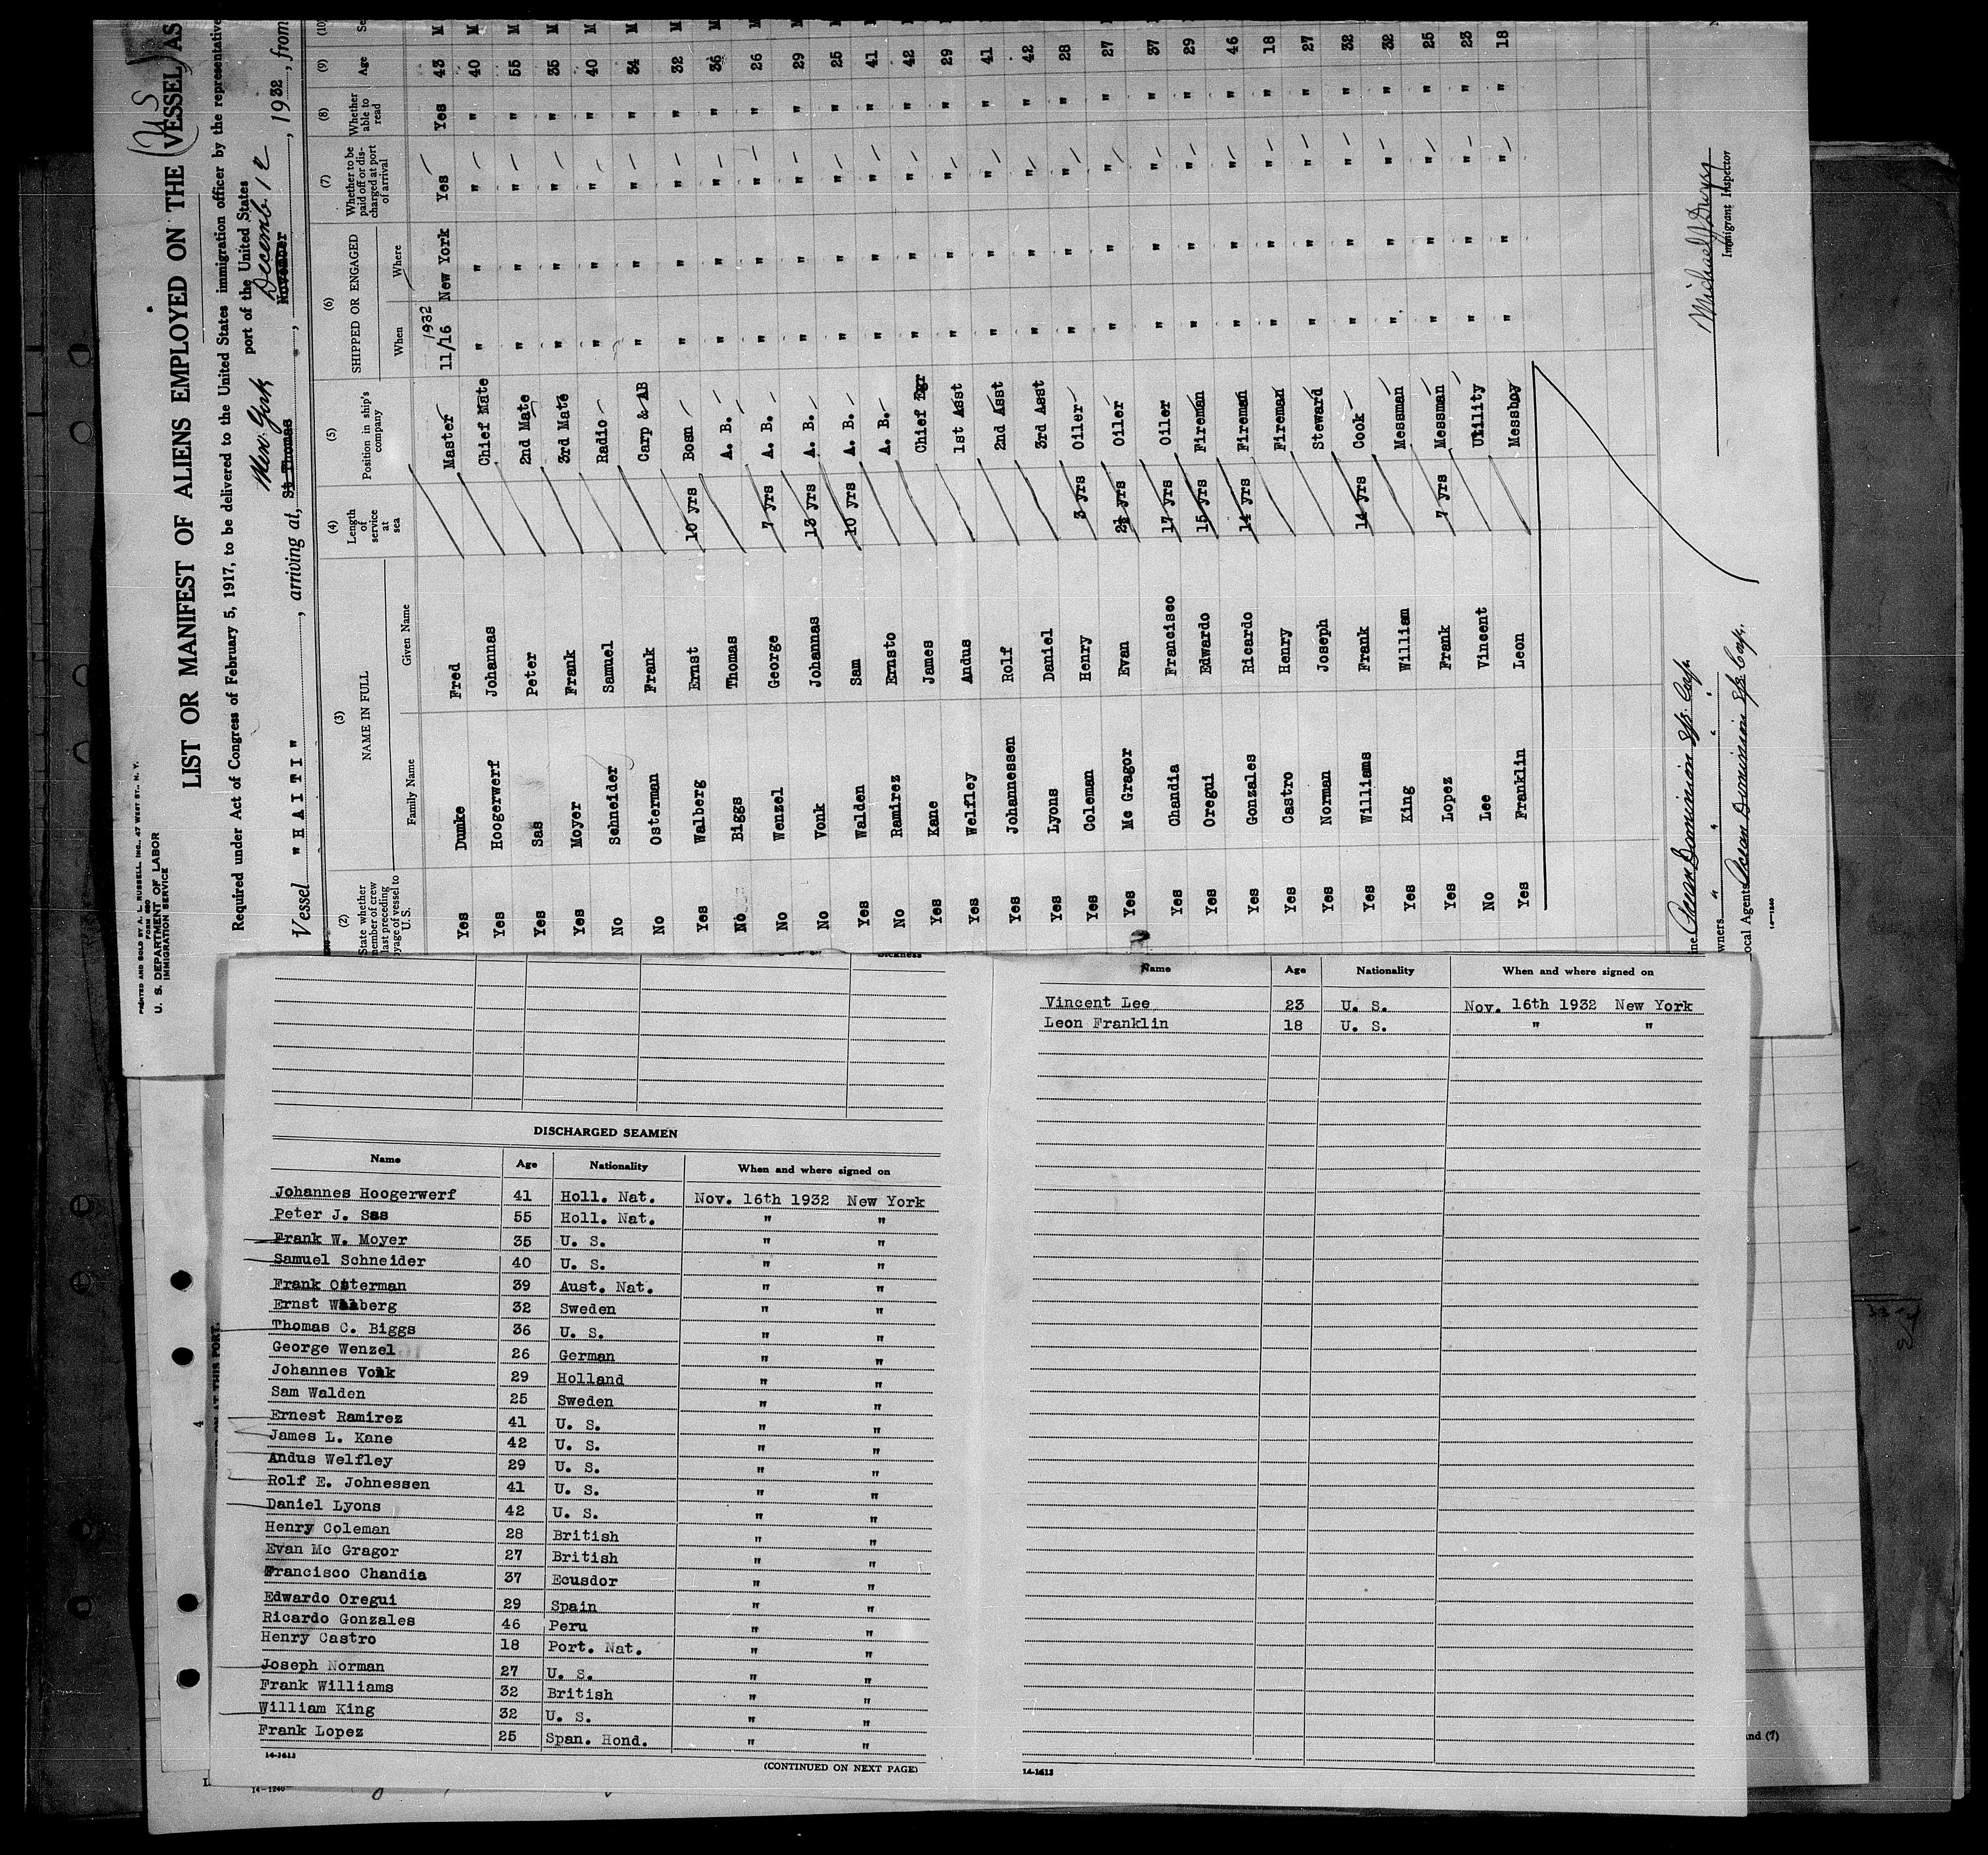 PRINTED AND SOLD BY A. L. RUSSELL, INC., 47 WEST ST., N. Y.
FORM 680
U. S. DEPARTMENT OF LABOR
IMMIGRATION SERVICE
LIST OR MANIFEST OF ALIENS EMPLOYED ON THE VESSEL AS
(US)
Required under Act of Congress of February 5, 1917, to be delivered to the United States immigration officer by the representative
port of the United States
Vessel " H A I T I ", arriving at, St Thomas New York, November Decemb. 12, 1932, from
(2) (3) (4) (5) (6) (7) (8) (9) (10)
State whether member of crew last preceding voyage of vessel to U.S. NAME IN FULL Length of service at sea Position in ship's company SHIPPED OR ENGAGED Whether to be paid off or discharged at port of arrival Whether able to read Age
Family Name Given Name When Where
Yes Dumke Fred Master 11/16 1932 New York Yes Yes 43 M
Yes Hoogerwerf Johannas Chief Mate " " " " 40 M
Yes Sas Peter 2nd Mate " " " " 55 M
Yes Moyer Frank 3rd Mate " " " " 35 M
No Schneider Samuel Radio " " " " 40 M
No Osterman Frank Carp & AB " " " " 34 M
Yes Walberg Ernst 10 yrs Bosn " " " " 32 M
No Biggs Thomas A. B. " " " " 36 M
No Wenzel George 7 yrs A. B. " " " " 26 M
No Vonk Johannas 13 yrs A. B. " " " " 29 M
Yes Walden Sam 10 yrs A. B. " " " " 25 M
No Ramirez Ernsto A. B. " " " " 41
Yes Kane James Chief Egr " " " " 42
Yes Welfley Andus 1st Asst " " " " 29
Yes Johannessen Rolf 2nd Asst " " " " 41
Yes Lyons Daniel 3rd Asst " " " " 42
Yes Coleman Henry 3 yrs Oiler " " " " 28
Yes Mc Gragor Evan 2½ yrs Oiler " " " " 27
Yes Chandia Francisco 17 yrs Oiler " " " " 37
Yes Oregui Edwardo 15 yrs Fireman " " " " 29
Yes Gonzales Ricardo 14 yrs Fireman " " " " 46
Yes Castro Henry Fireman " " " " 18
Yes Norman Joseph Steward " " " " 27
Yes Williams Frank 14 yrs Cook " " " " 32
Yes King William Messman " " " " 32
Yes Lopez Frank 7 yrs Messman " " " " 25
No Lee Vincent Utility " " " " 23
Yes Franklin Leon Messboy " " " " 18
Ocean Dominion S/S. Corp.
wners " " " "
ocal Agents Ocean Dominion S/S Corp.
14-1240
Immigrant Inspector
Sickness
DISCHARGED SEAMEN
Name Age Nationality When and where signed on
Johannes Hoogerwerf 41 Holl. Nat. Nov. 16th 1932 New York
Peter J. Sas 55 Holl. Nat. " "
Frank W. Moyer 35 U. S. " "
Samuel Schneider 40 U. S. " "
Frank Osterman 39 Aust. Nat. " "
Ernst Walberg 32 Sweden " "
Thomas C. Biggs 36 U. S. " "
George Wenzel 26 German " "
Johannes Vonk 29 Holland " "
Sam Walden 25 Sweden " "
Ernest Ramirez 41 U. S. " "
James L. Kane 42 U. S. " "
Andus Welfley 29 U. S. " "
Rolf E. Johnessen 41 U. S. " "
Daniel Lyons 42 U. S. " "
Henry Coleman 28 British " "
Evan Mc Gragor 27 British " "
Francisco Chandia 37 Ecusdor " "
Edwardo Oregui 29 Spain " "
Ricardo Gonzales 46 Peru " "
Henry Castro 18 Port. Nat. " "
Joseph Norman 27 U. S. " "
Frank Williams 32 British " "
William King 32 U. S. " "
Frank Lopez 25 Span. Hond. " "
14-1613
(CONTINUED ON NEXT PAGE)
Name Age Nationality When and where signed on
Vincent Lee 23 U. S. Nov. 16th 1932 New York
Leon Franklin 18 U. S. " "
14-1613
AT THIS PORT.
4
14-1240
nd (7)